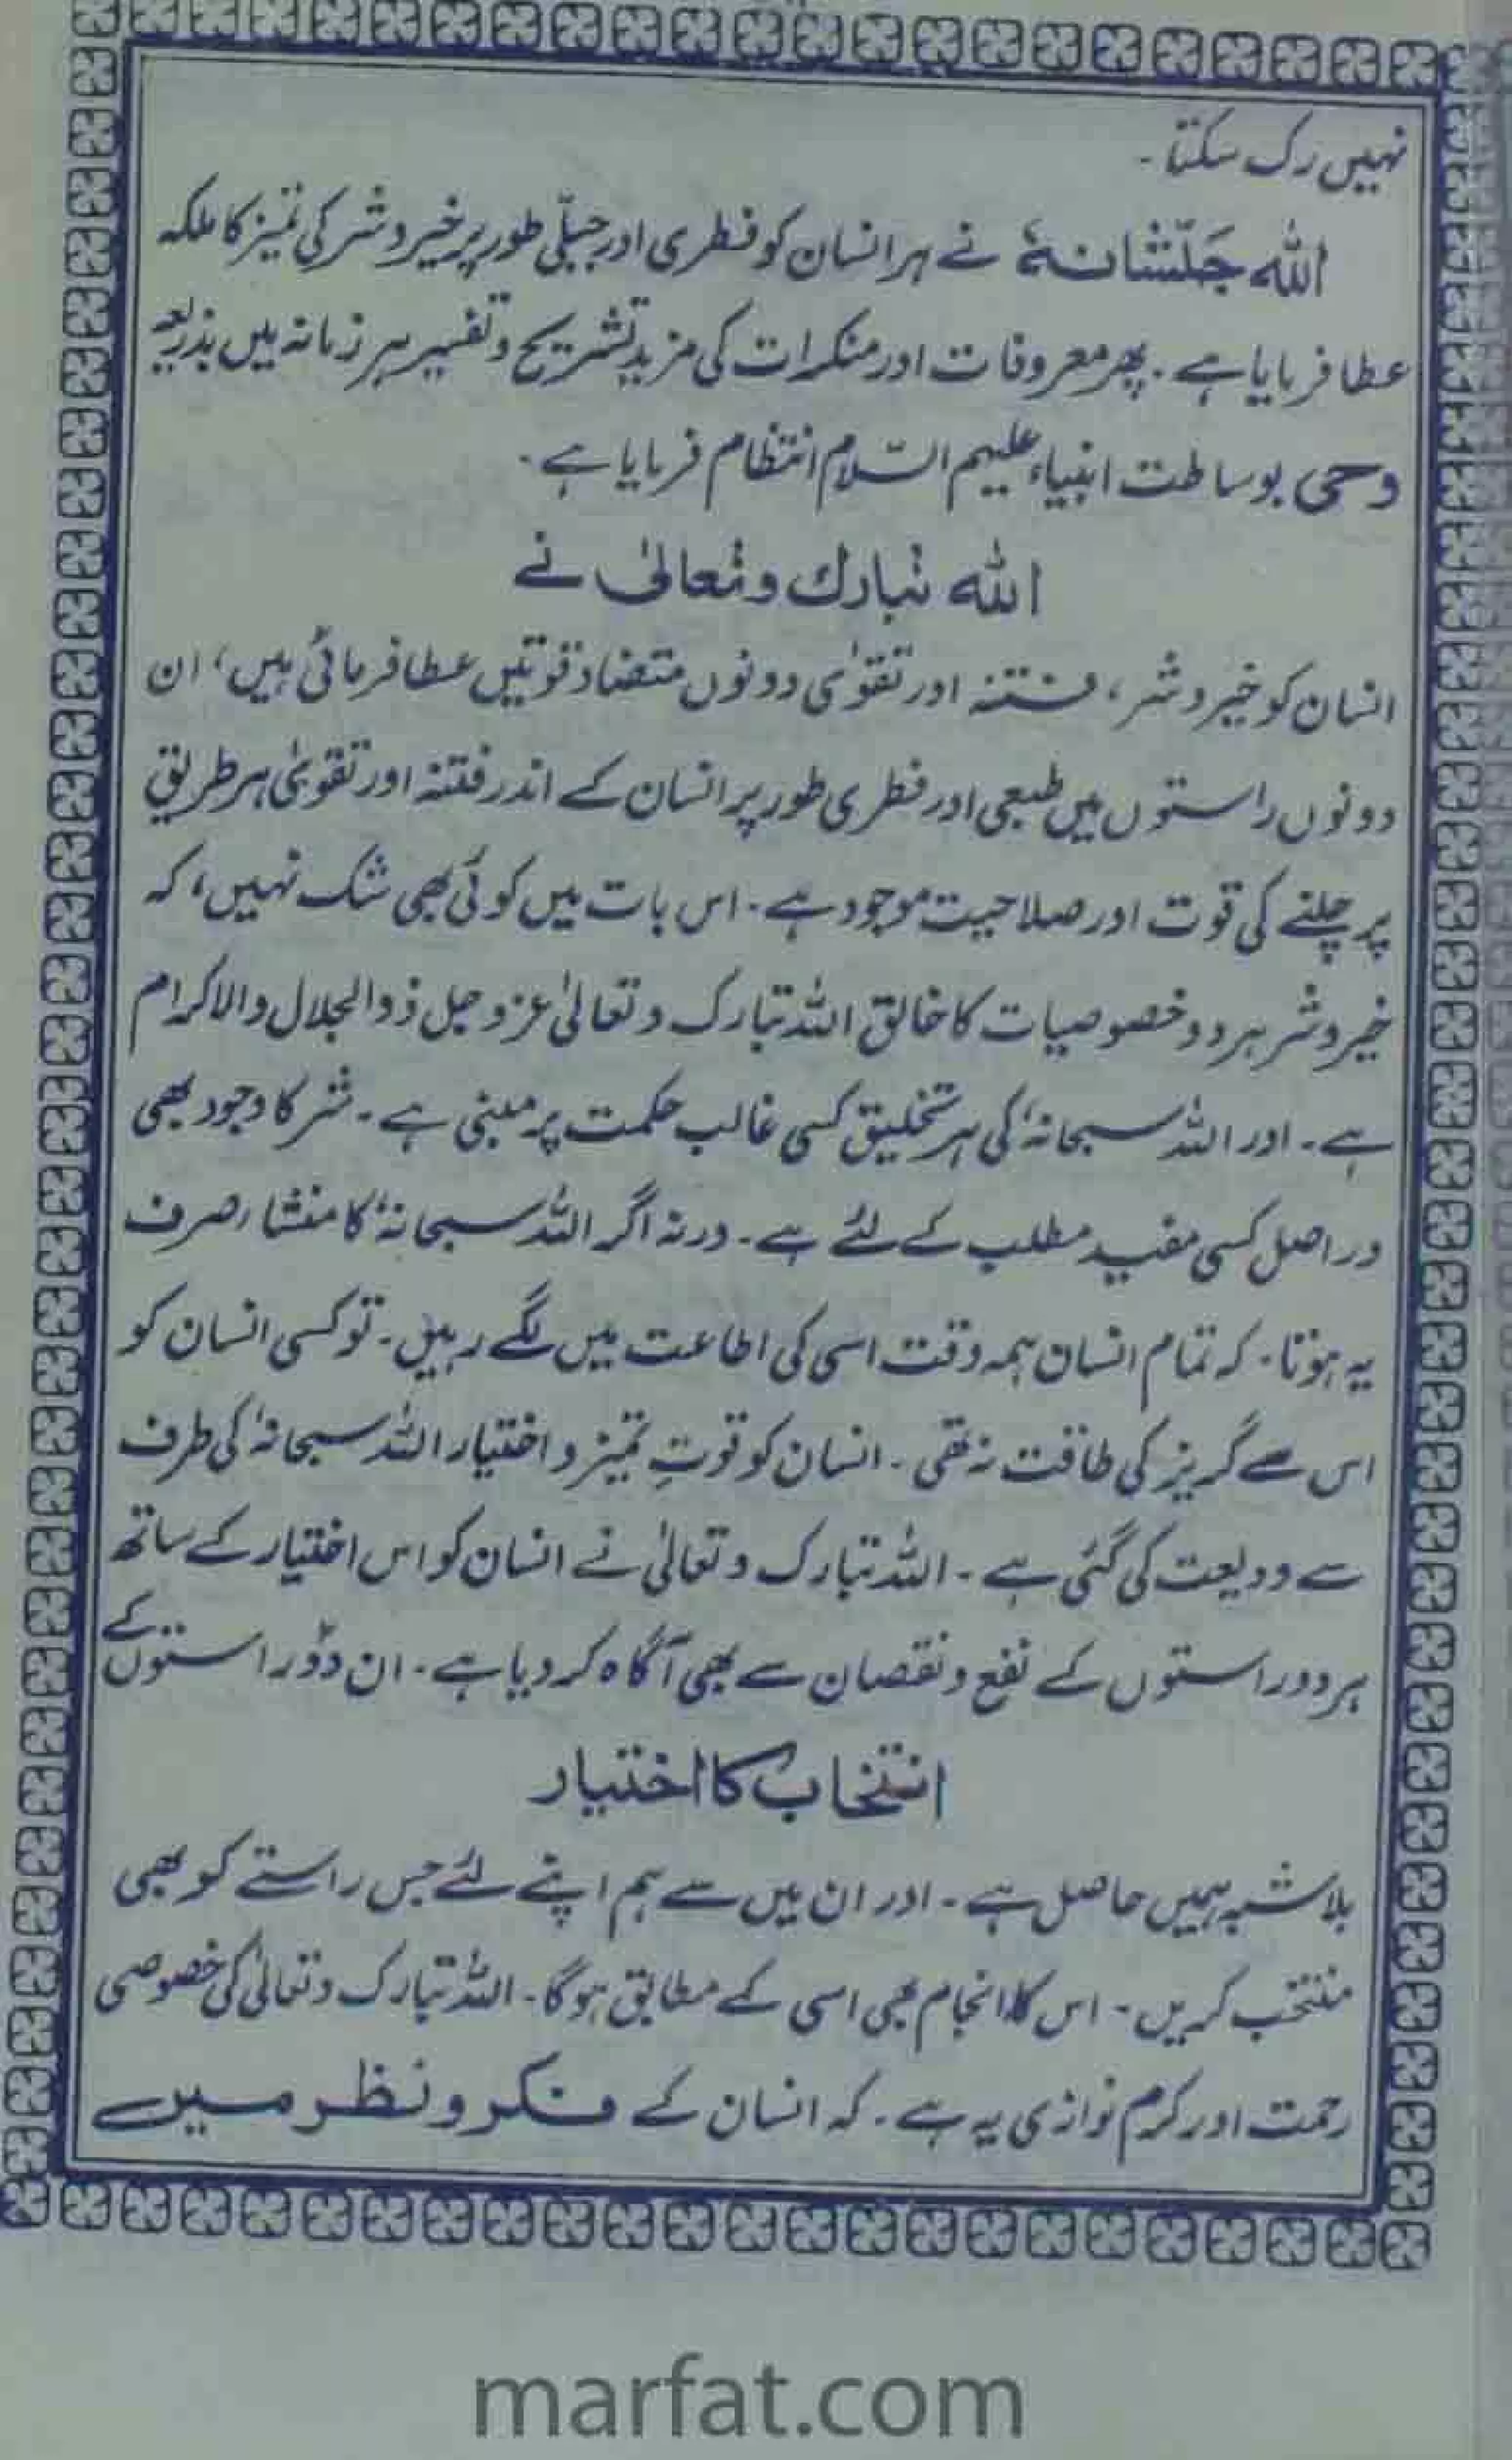 نہیں رک سکتا ۔
اللہ جَلّشَانہٗ نے ہر انسان کو فطری اور جبلّی طور پر خیر و شر کی تمیز کا ملکہ
عطا فرمایا ہے ۔ پھر معروفات اور منکرات کی مزید تشریح و تفسیر ہر زمانہ میں بذریعہ
وحی بوساطت انبیاء علیہم السّلام انتظام فرمایا ہے ۔
اللہ تبارک وتعالیٰ نے
انسان کو خیر و شر ، فتنہ اور تقوٰی دونوں متضاد قوتیں عطا فرمائی ہیں ، ان
دونوں راستوں میں طبعی اور فطری طور پر انسان کے اندر فتنہ اور تقویٰ ہر طریق
پر چلنے کی قوت اور صلاحیت موجود ہے ۔ اس بات میں کوئی بھی شک نہیں ، کہ
خیر و شر ہر دو خصوصیات کا خالق اللہ تبارک و تعالیٰ عز و جل ذوالجلال والاکرام
ہے ۔ اور اللہ سبحانہٗ کی ہر تخلیق کسی غالب حکمت پر مبنی ہے ۔ شر کا وجود بھی
در اصل کسی مفید مطلب کے لئے ہے ۔ ورنہ اگر اللہ سبحانہٗ کا منشاء صرف
یہ ہوتا ۔ کہ تمام انسان ہمہ وقت اسی کی اطاعت میں لگے رہیں ۔ تو کسی انسان کو
اس سے گریز کی طاقت نہ تھی ۔ انسان کو قوتِ تمیز و اختیار اللہ سبحانہٗ کی طرف
سے ودیعت کی گئی ہے ۔ اللہ تبارک و تعالیٰ نے انسان کو اس اختیار کے ساتھ
ہر دو راستوں کے نفع و نقصان سے بھی آگاہ کر دیا ہے ۔ ان دو راستوں کے
انتخاب کا اختیار
بلا شبہ ہمیں حاصل ہے ۔ اور ان میں سے ہم اپنے لئے جس راستے کو بھی
منتخب کریں ۔ اس کا انجام بھی اسی کے مطابق ہو گا ۔ اللہ تبارک و تعالیٰ کی خصوصی
رحمت اور کرم نوازی یہ ہے ۔ کہ انسان کے فکر و نظر میں
marfat.com